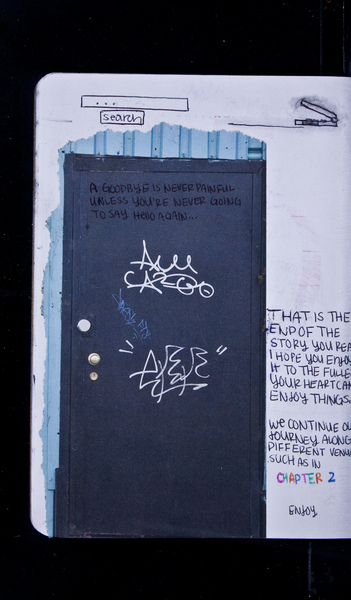 ...
search
A GOODBYE IS NEVER PAINFUL
UNLESS YOU'RE NEVER GOING
TO SAY Hello AGAIN...
THAT IS THE
END OF THE
STORY YOU REA
I HOPE YOU ENJOY
IT TO THE FULLES
YOUR HEART CAN
ENJOY THINGS.
WE CONTINUE OU
JOURNEY ALONG
DIFFERENT VENU
SUCH AS IN
CHAPTER 2
ENJOY